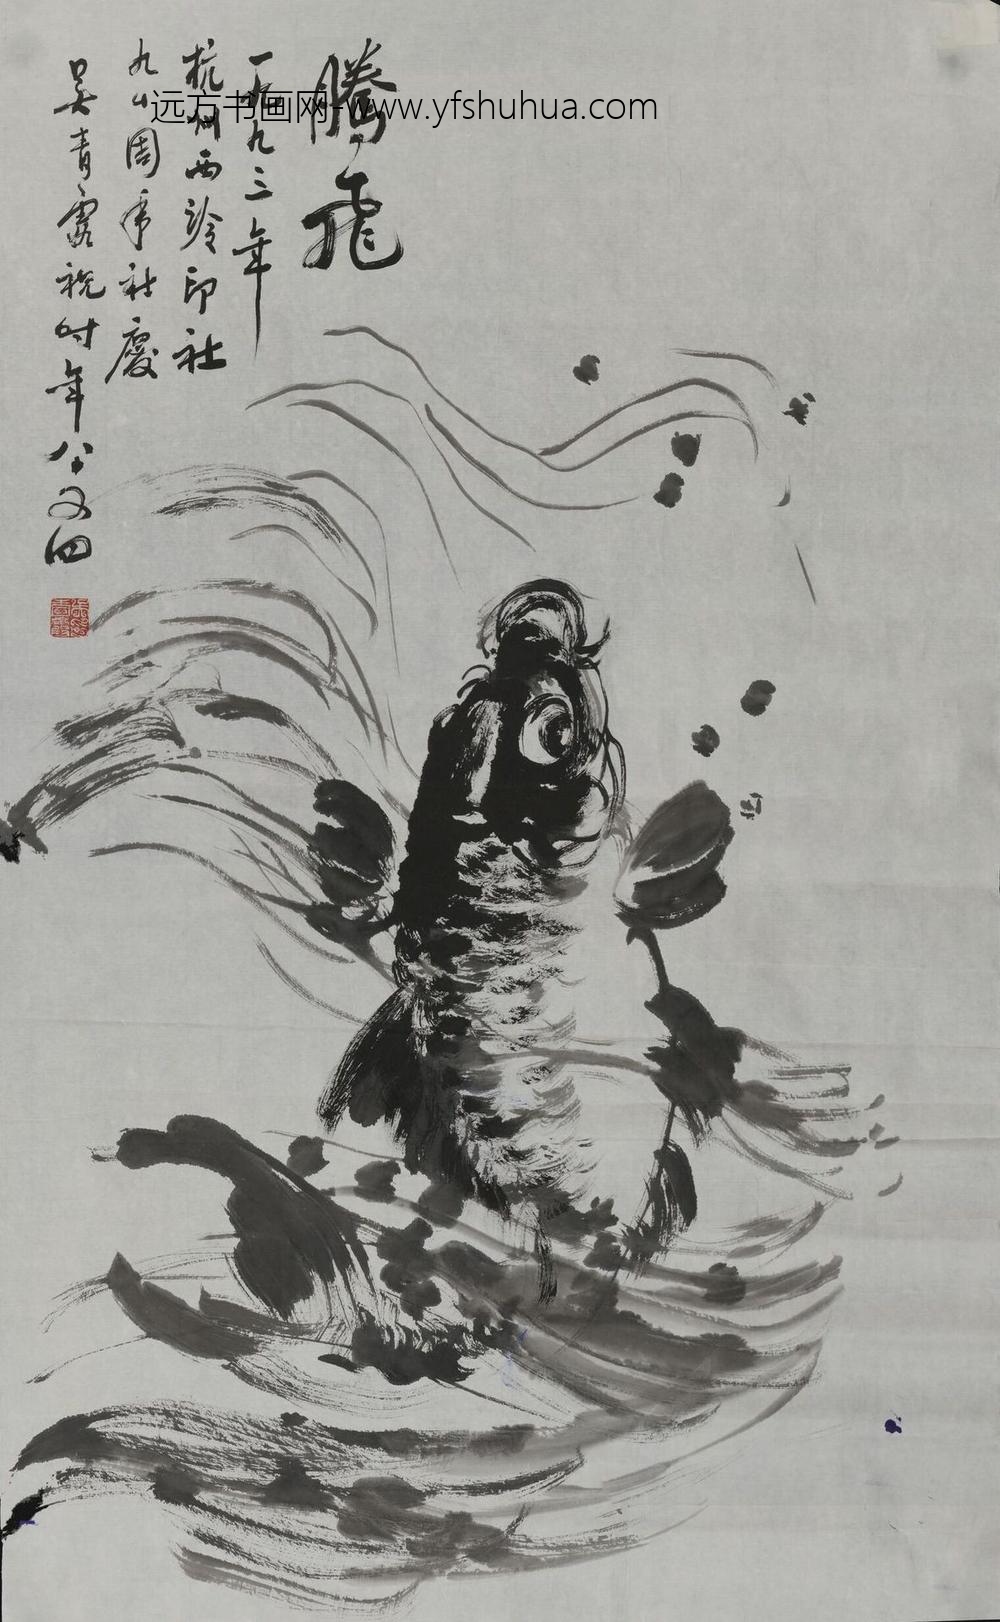 腾飛
一九九三年
杭州西泠印社
九十周年社慶
吴青霞祝时年八十又四
远方书画网-www.yfshuhua.com